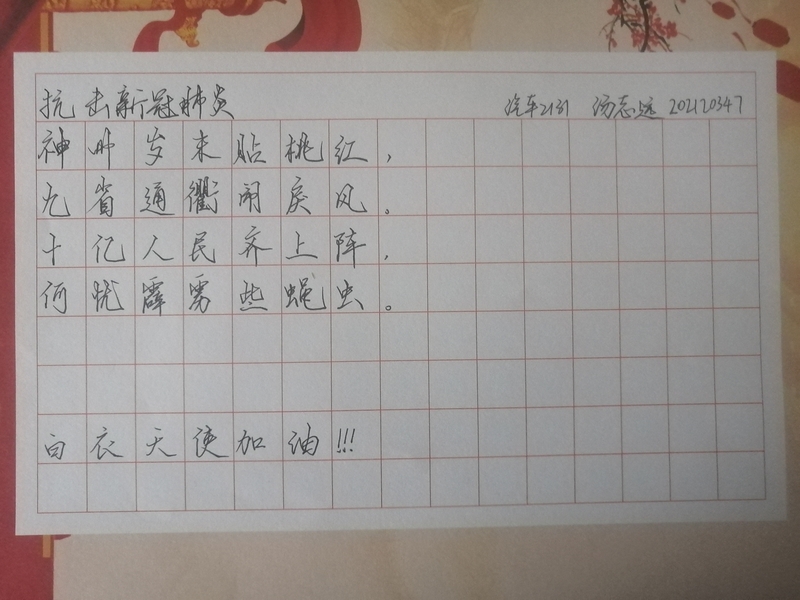 抗击新冠肺炎 汽车2181 汤志远 202120347
神州岁末贴桃红，
九省通衢闹戾风。
十亿人民齐上阵，
何忧霹雳些蝇虫。
白衣天使加油!!!